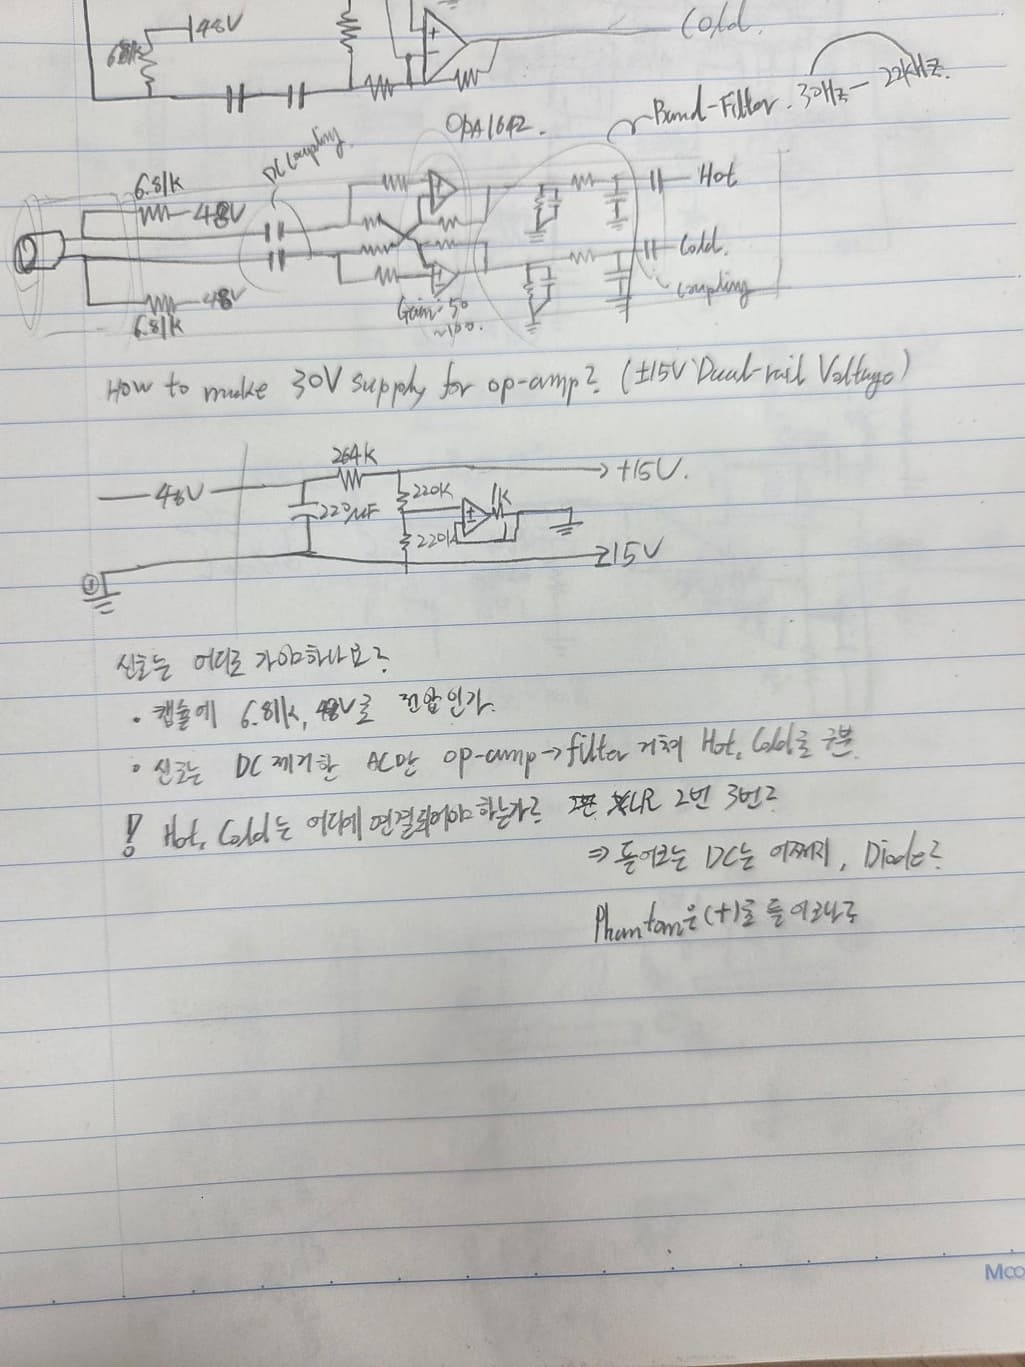 48V
68k
Cold.
Band-Filter. 30Hz - 22kHz.
OPA1642.
DC Coupling.
6.81k
48V
Hot
Cold.
48V
6.81k
Gain: 50 ~100.
Coupling
How to make 30V supply for op-amp? (±15V Dual-rail Voltage)
264k
48V
+15V.
220k
1K
220μF
220k
15V
①
신호는 어디로 가야하나요?
• 캡슐에 6.81k, 48V로 전압인가.
• 신호는 DC 제거한 AC만 op-amp→filter 거쳐 Hot, Cold로 구분.
! Hot, Cold는 어디에 연결되어야하는가? XLR 2번 3번?
⇒ 들어오는 DC는 어쩌지, Diode?
Phantom은 (+)로 들어오나?
Moo